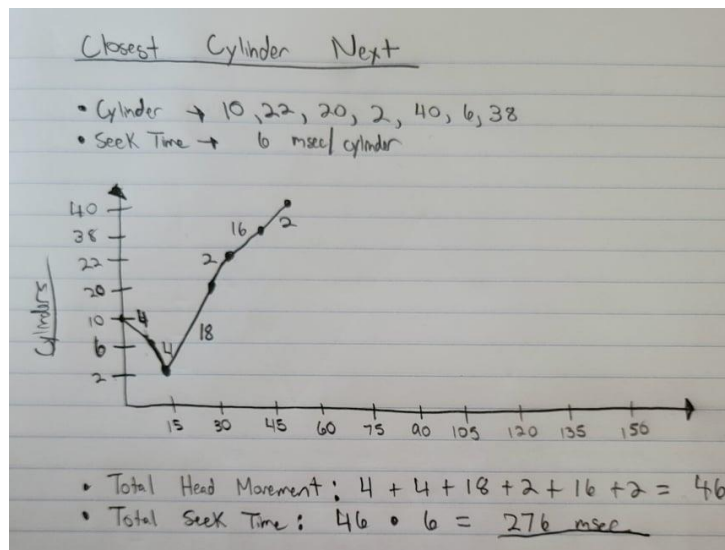 Closest Cylinder Next
• Cylinder → 10, 22, 20, 2, 40, 6, 38
• Seek Time → 6 msec/cylinder
Cylinders
40
38
22
20
10
6
2
4
4
18
2
16
2
15 30 45 60 75 90 105 120 135 150
• Total Head Movement: 4 + 4 + 18 + 2 + 16 + 2 = 46
• Total Seek Time: 46 • 6 = 276 msec